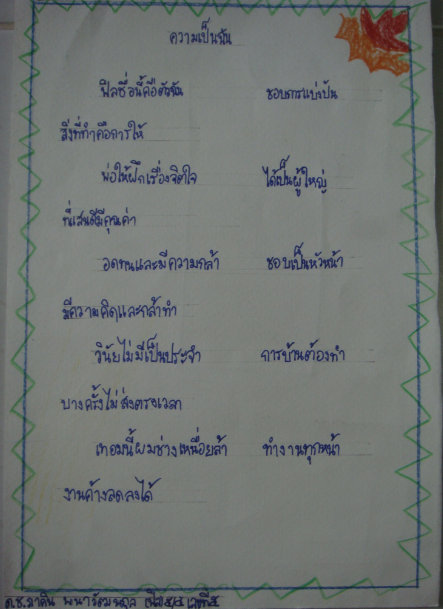 ความเป็นฉัน
ฟิลชื่อนี้คือตัวฉัน ชอบการแบ่งปัน
สิ่งที่ทำคือการให้
พ่อให้ฝึกเรื่องจิตใจ ได้เป็นผู้ใหญ่
ที่แสนดีมีคุณค่า
อดทนและมีความกล้า ชอบเป็นหัวหน้า
มีความคิดและกล้าทำ
วินัยไม่มีเป็นประจำ การบ้านต้องทำ
บางครั้งไม่ส่งตรงเวลา
เทอมนี้ผมช่างเหนื่อยล้า ทำงานทุกหน้า
งานค้างลดลงได้
ด.ช.ภาคิน